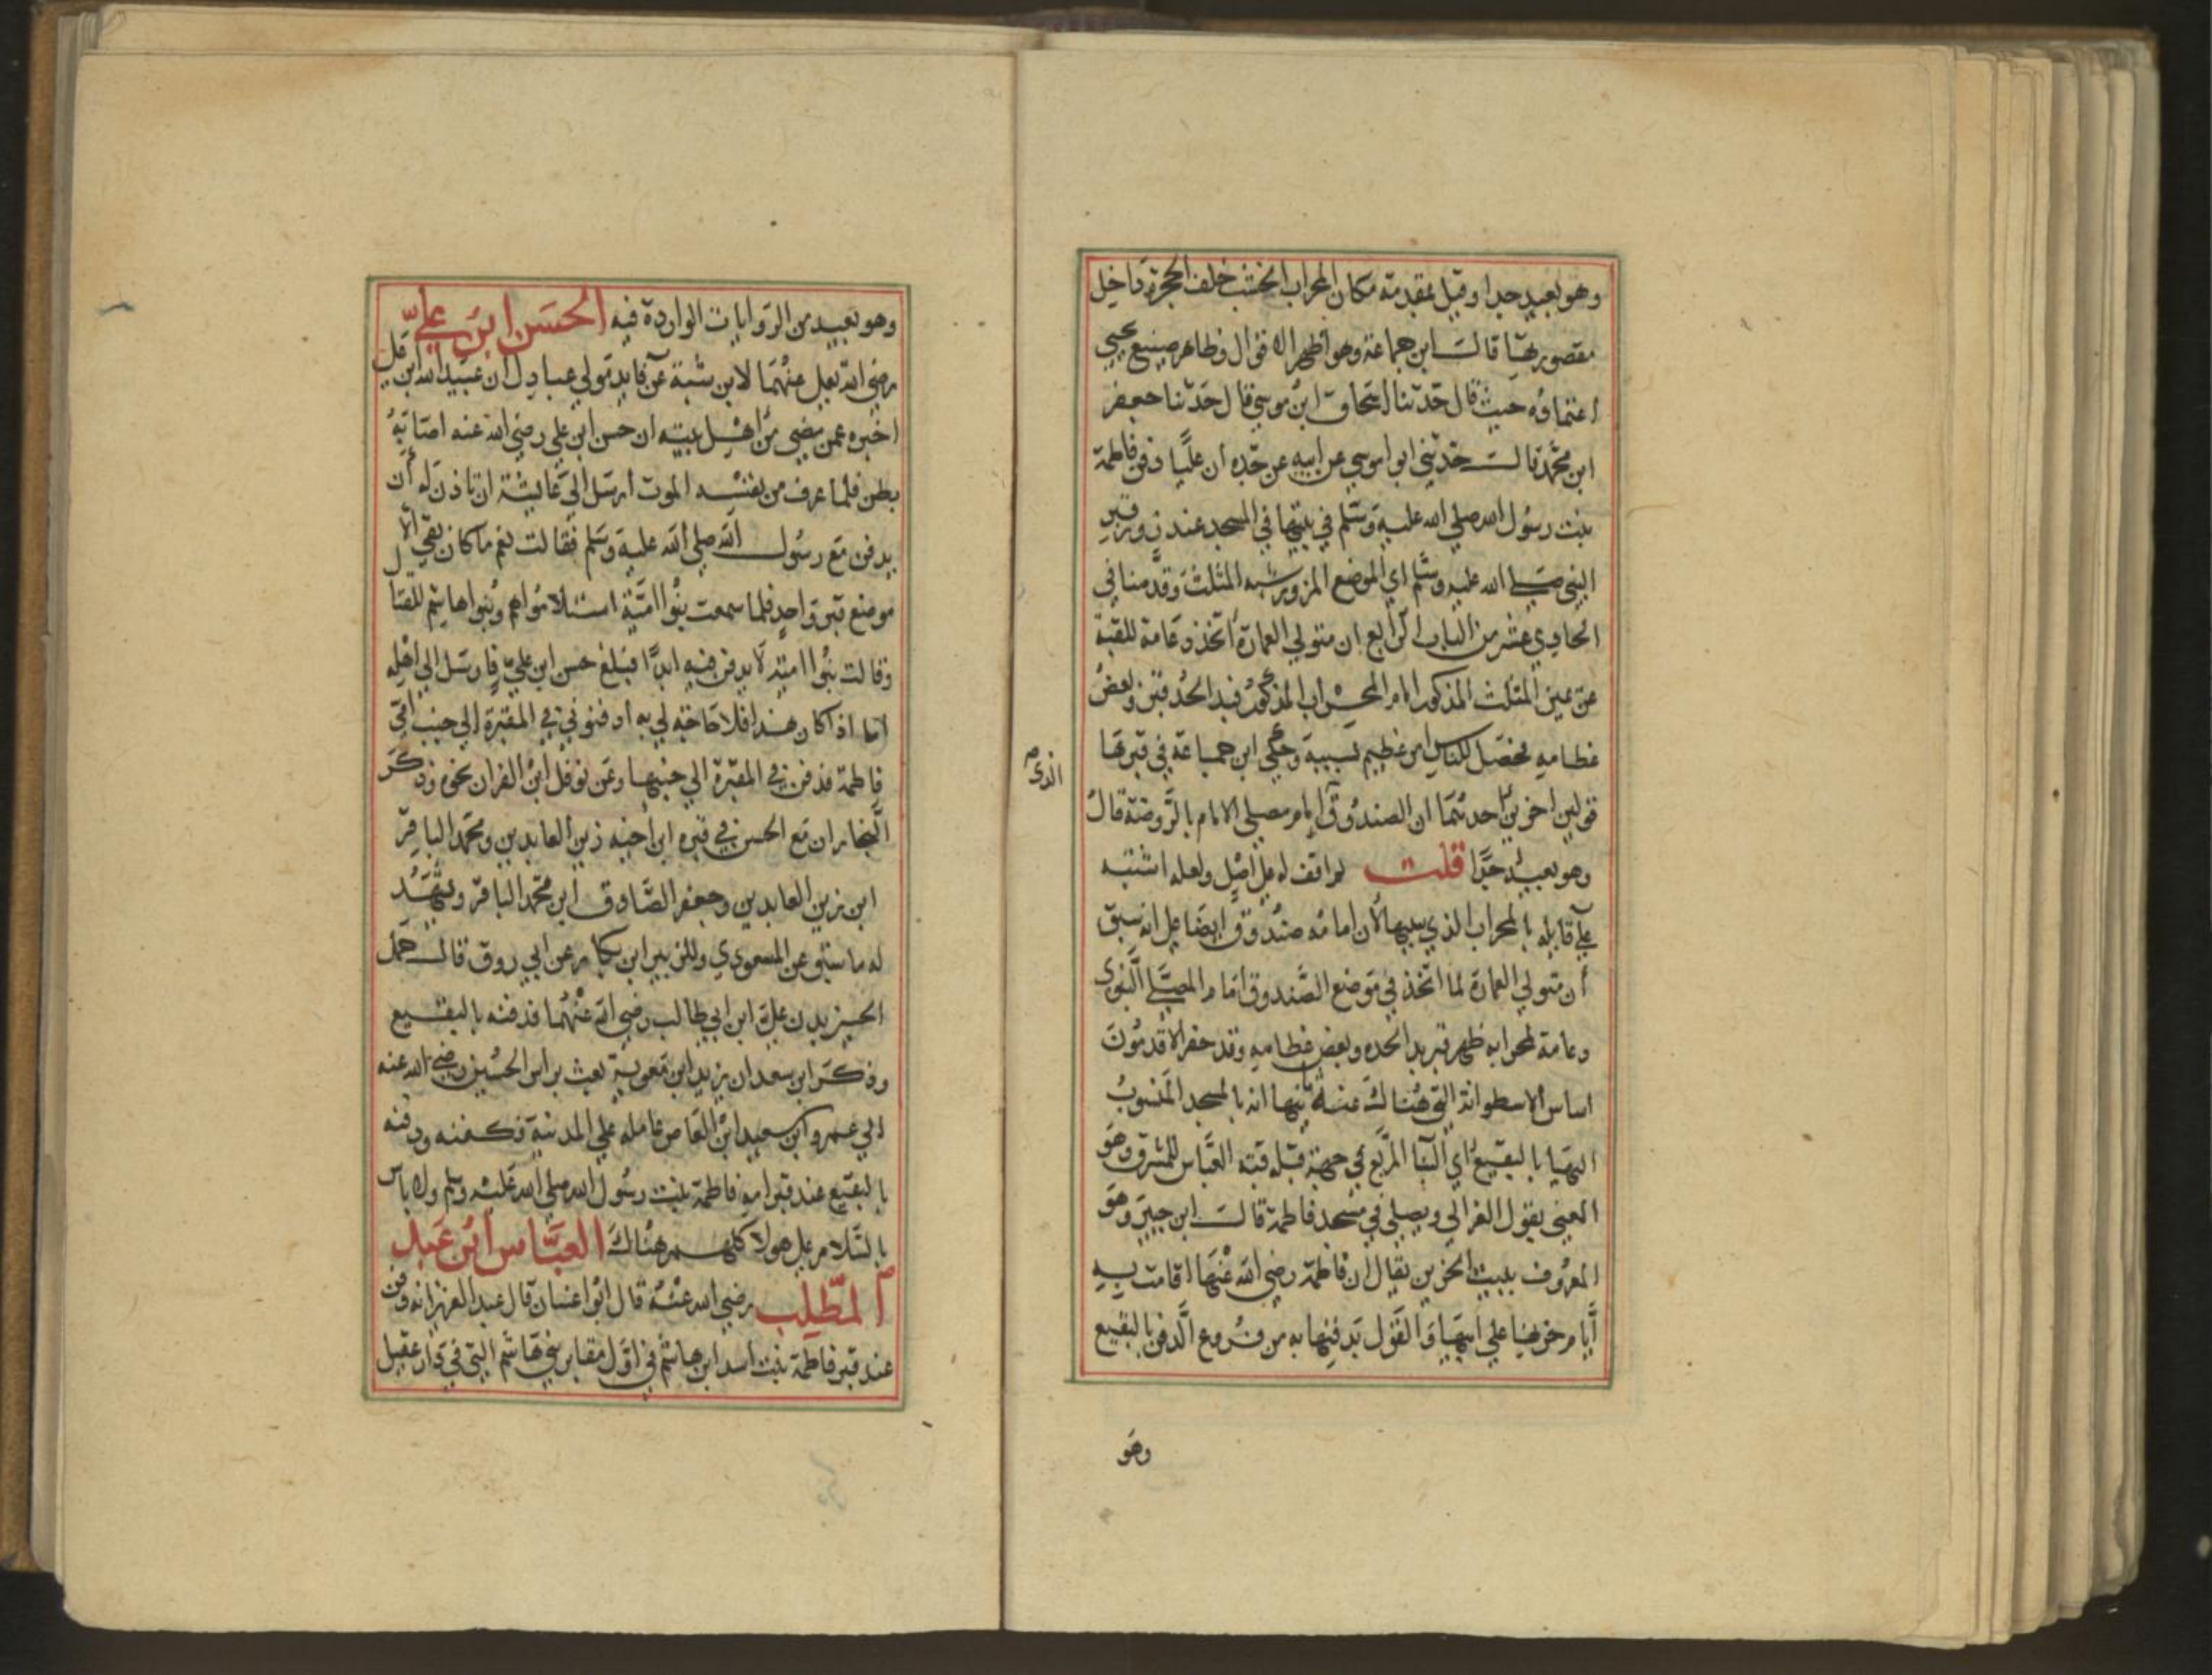 وهو بعيد جدا وقيل بمقدمة مكان المحراب الخشب خلف الحجرة داخل
مقصورتها قالت ابن جماعة وهو اظهر الاقوال وظاهر صنيع يحيي
اعتماده حيث قال حدثنا اسحاق ابن موسي قال حدثنا جعفر
ابن محمد قالت حدثني ابي موسي عن ابيه عن جده ان عليا دفن فاطمة
بنت رسول الله صلي الله عليه وسلم في بيتها في المسجد عند زور قبر
النبي صلي الله عليه وسلم اي الموضع المزور شبه المثلث وقدمنا في
الحادي عشر من الباب الرابع ان متولي العمارة اتخذ دعامة للقبة
عن يمين المثلث المذكور امام المحراب المذكور فبدا لحد قبر وبعض
عظامه فحصل للناس امر عظيم بسببه وحكي ابن جماعة في قبرها
قولين اخرين احدهما ان الصندوق امام مصلي الامام بالروضة قال
الذي
وهو بعيد جدا قلت لم اقف له علي اصل ولعله اشتبه
علي قايله بالمحراب الذي ببيتها لان امامه صندوق ايضا علي انه سبق
أن متولي العمارة لما اتخذ في موضع الصندوق امام المصلي النبوي
دعامة لمحرابه ظهر قبر بدا لحده وبعض عظامه وقد حفر الاقدمون
اساس الاسطوانة التي هناك عنه ثانيها انه بالمسجد المنسوب
اليها بالبقيع اي البنا المربع في جهة قبلة قبة العباس للمشرق وهو
المعني بقول الغزالي ويصلي في مسجد فاطمة قالت ابن جبير وهو
المعروف ببيت الحزن يقال ان فاطمة رضي الله عنها اقامت به
أيام حزنها علي ابيها والقول بدفنها به من فروع الدفن بالبقيع
وهو
وهو بعيد من الروايات الواردة فيه الحسن ابن علي
رضي الله تعلي عنهما لابن شبة عن فايد مولي عبادل ان عبيد الله ابن علي
اخبره عمن مضي من اهل بيته ان حسن ابن علي رضي الله عنه اصابه
بطن فلما عرف من نفسه الموت ارسل الي عايشة ان تاذن له أن
يدفن مع رسول الله صلي الله عليه وسلم فقالت نعم ما كان بقي الا
موضع قبر واحد فلما سمعت بنوا امية استلاموا هم وبنوا هاشم للقتال
وقالت بنوا امية لا يدفن فيه ابدا فبلغ حسن ابن علي فارسل الي اهله
اما اذا كان هذا فلا حاجة لي به ادفنوني في المقبرة الي جنب امي
فاطمة فدفن في المقبرة الي جنبها وعن نوفل ابن الفرات نحوه وذكر
النجار ان مع الحسن في قبره ابن اخيه زين العابدين ومحمد الباقر
ابن زين العابدين وجعفر الصادق ابن محمد الباقر ويشهد
له ما سبق عن المسعودي وللزبير ابن بكار عن ابي روق قالت حمل
الحسن بدن علي ابن ابي طالب رضي الله عنهما فدفنه بالبقيع
وذكر ابن سعد ان يزيد ابن معوية بعث براس الحسين رضي الله عنه
الي عمرو ابن سعيد ابن العاص عامله علي المدينة فكفنه ودفنه
بالبقيع عند قبر امه فاطمة بنت رسول الله صلي الله عليه وسلم ولا باس
بالسلام علي هولا كلهم هناك العباس ابن عبد
المطلب رضي الله عنه قال ابوا غسان قال عبد العزيز انه دفن
عند قبر فاطمة بنت اسد ابن هاشم في اول مقابر بني هاشم التي في دار عقيل